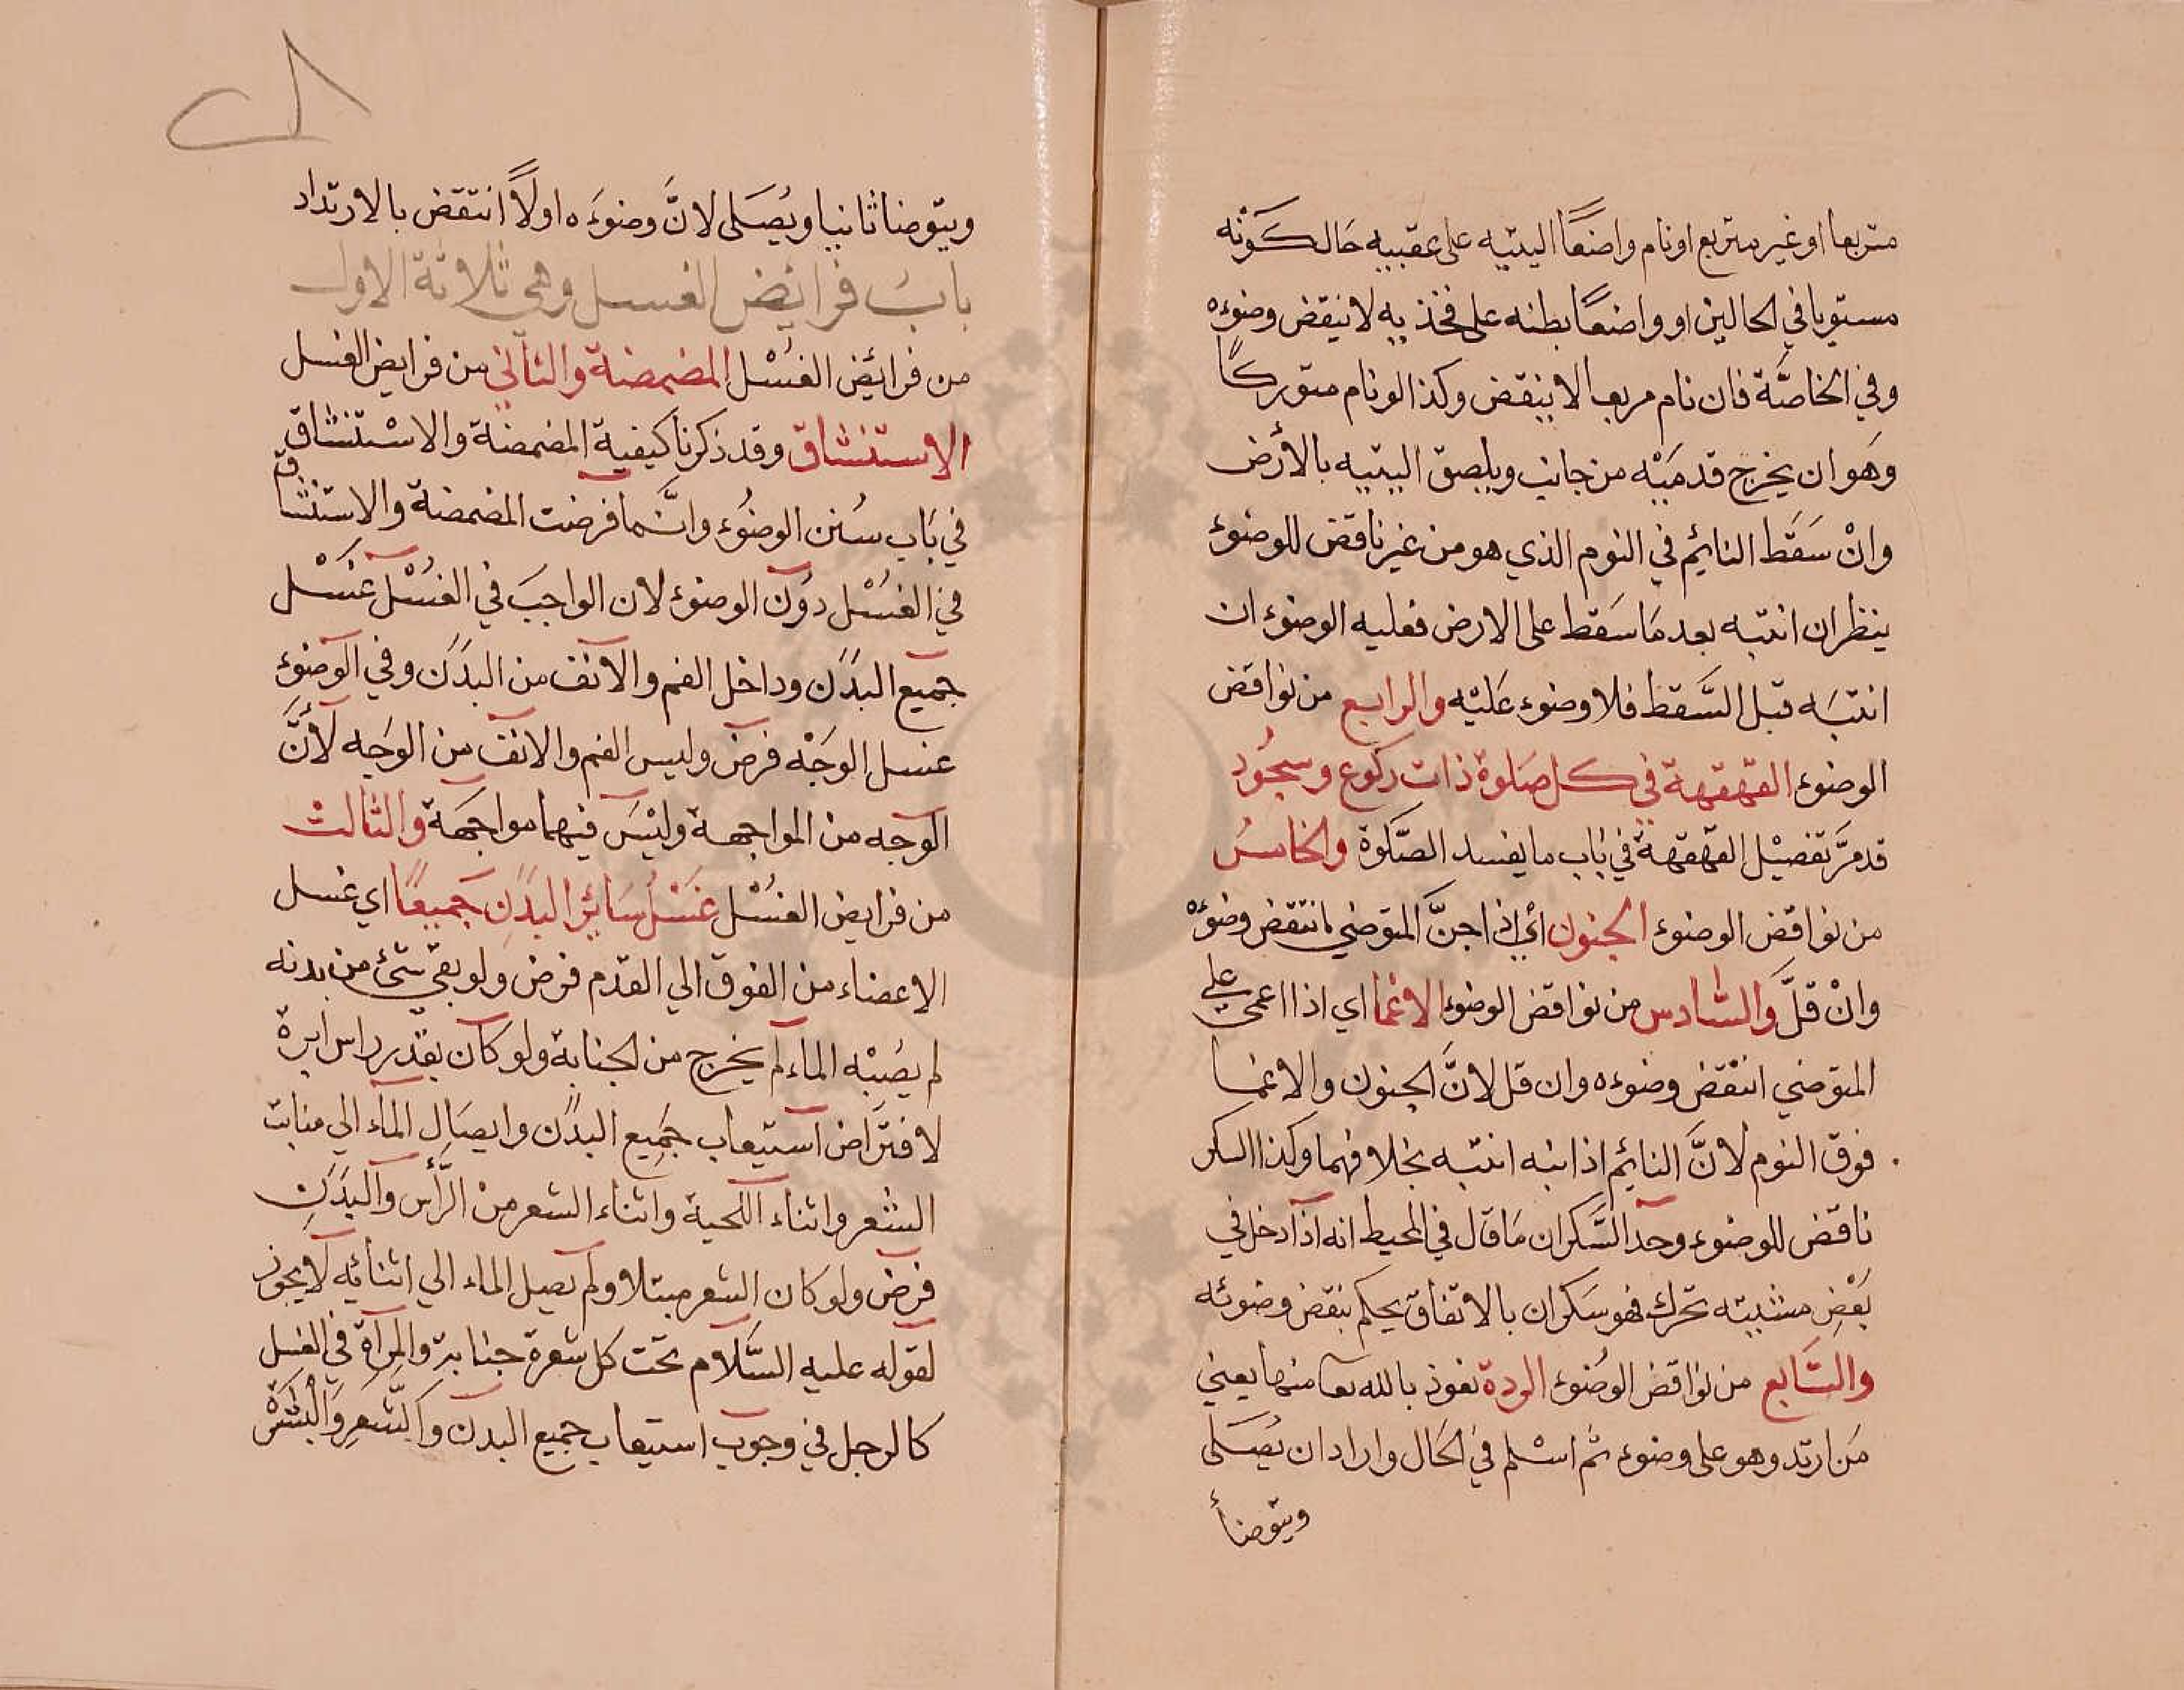 متربعا او غير متربع او نام واضعًا اليتيه على عقبيه حَال كَوْنه
مستويا في الحالين او واضعًا بطنه على فخذيه لا ينقض وضوءه
وفي الخاصَّة فان نام مربعا لا ينقض وكذا لو نام متوركًا
وهَو ان يخرج قدمَيْه من جانب ويلصق اليتيه بالأرض
وانْ سَقَط النائِم في النوم الذي هو من غير ناقض للوضوء
ينظر ان انتبه بعد مَا سَقط على الارض فعليه الوضوء ان
انتبَه قبل السَّقط فلا وضوء عَليْه والرابع من نواقض
الوضوء القهقهة في كل صَلوة ذات ركوع وسجُود
قد مرَّ تفصيْل القهقهة في بَاب ما يفسد الصَّلَوة والخامسُ
من نواقض الوضوء الجنون أي اذا جنَّ المتوضي انتقض وضوءه
وانْ قلَّ والسَّادس من نواقض الوضوء الاغما اي اذا اغمي علي
المتوضي انتْقض وضوءه وان قل لانَّ الجنون والاغما
فوق النوم لانَّ النايُم اذا نبه انتبه بخلافهما وكذا السكر
ناقض للوضوء وحد السَّكران مَا قال في المحيط انه اذا دخل في
بَعْضِ مشيته تحرك فهو سَكران بالاتفاق يحكم بنقض وضوئه
والسَّابع من نواقض الوُضوء الردة نعوذ بالله تعا منها يعني
مَن ارتد وهو على وضوء ثم اسْلم في الحَال واراد ان يُصَلى
ويتوضأ
ويتوضا ثانيا ويُصَلى لانَّ وضوءَه اولاً انتقض بالارتداد
بابُ فرايض الغسل وهي ثلاثة الاول
من فرائض الغسْل المضمضة والثاني من فرايض الغسل
الاستنشاق وقد ذكرنا كيفية المضمضة والاسْتنشاق
في بَاب سُنن الوضوُء وانَّما فرضت المضمضة والاستنشاق
في الغسُْل دوُن الوضوء لان الواجبَ في الغُسْل غسْل
جميع البدَن وداخل الفم والانف من البدَن وفي الوضوء
غسل الوجْه فرض وليس الفم والانف من الوجه لأنَّ
الوجه من المواجهة وليْسَ فيهما مواجَهَة والثالث
من فرايض الغسُْل غَسْلُ سَائِر البدَنِ جَميعًا اي غسل
الاعضاء من الفوق الي القدم فرض ولو بقي شئ من بدنه
لم يصُبْه الماء لم يخرج من الجنابة ولو كان بقدر راس ابرة
لافترَاض استيعاب جَميع البدَن وايصَال الماء الي منابت
الشعر واثناء اللحية واثناء الشعر من الرَّأس والبَدَنِ
فرض ولو كان الشعر مبتلا ولم يصل الماء الي اثنائه لا يجوز
لقوله عليه السَّلام تحت كل شعرة جنابة والمرآة في الغسل
كالرجل في وجوب استيعاب جميع البدن والشَّعرِ وَالْبشرَة